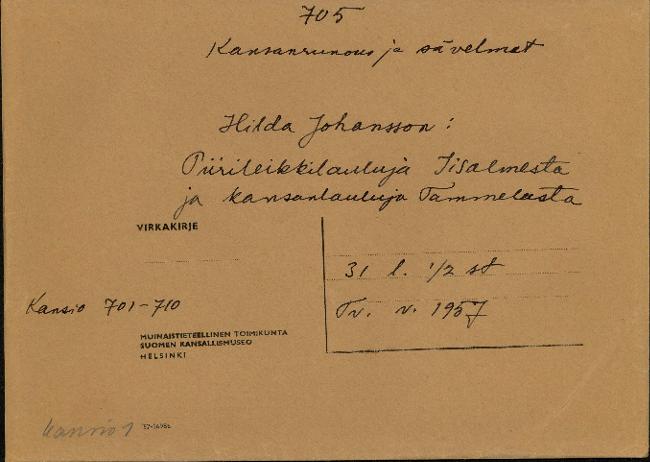 705
Kansanrunous ja sävelmät
Hilda Johansson:
Piirileikkilauluja Iisalmesta
ja kansanlauluja Tammelasta
VIRKAKIRJE
31 l. 1/2 st
Tv. v. 1957
Kansio 701-710
MUINAISTIETEELLINEN TOIMIKUNTA
SUOMEN KANSALLISMUSEO
HELSINKI
kansio 1